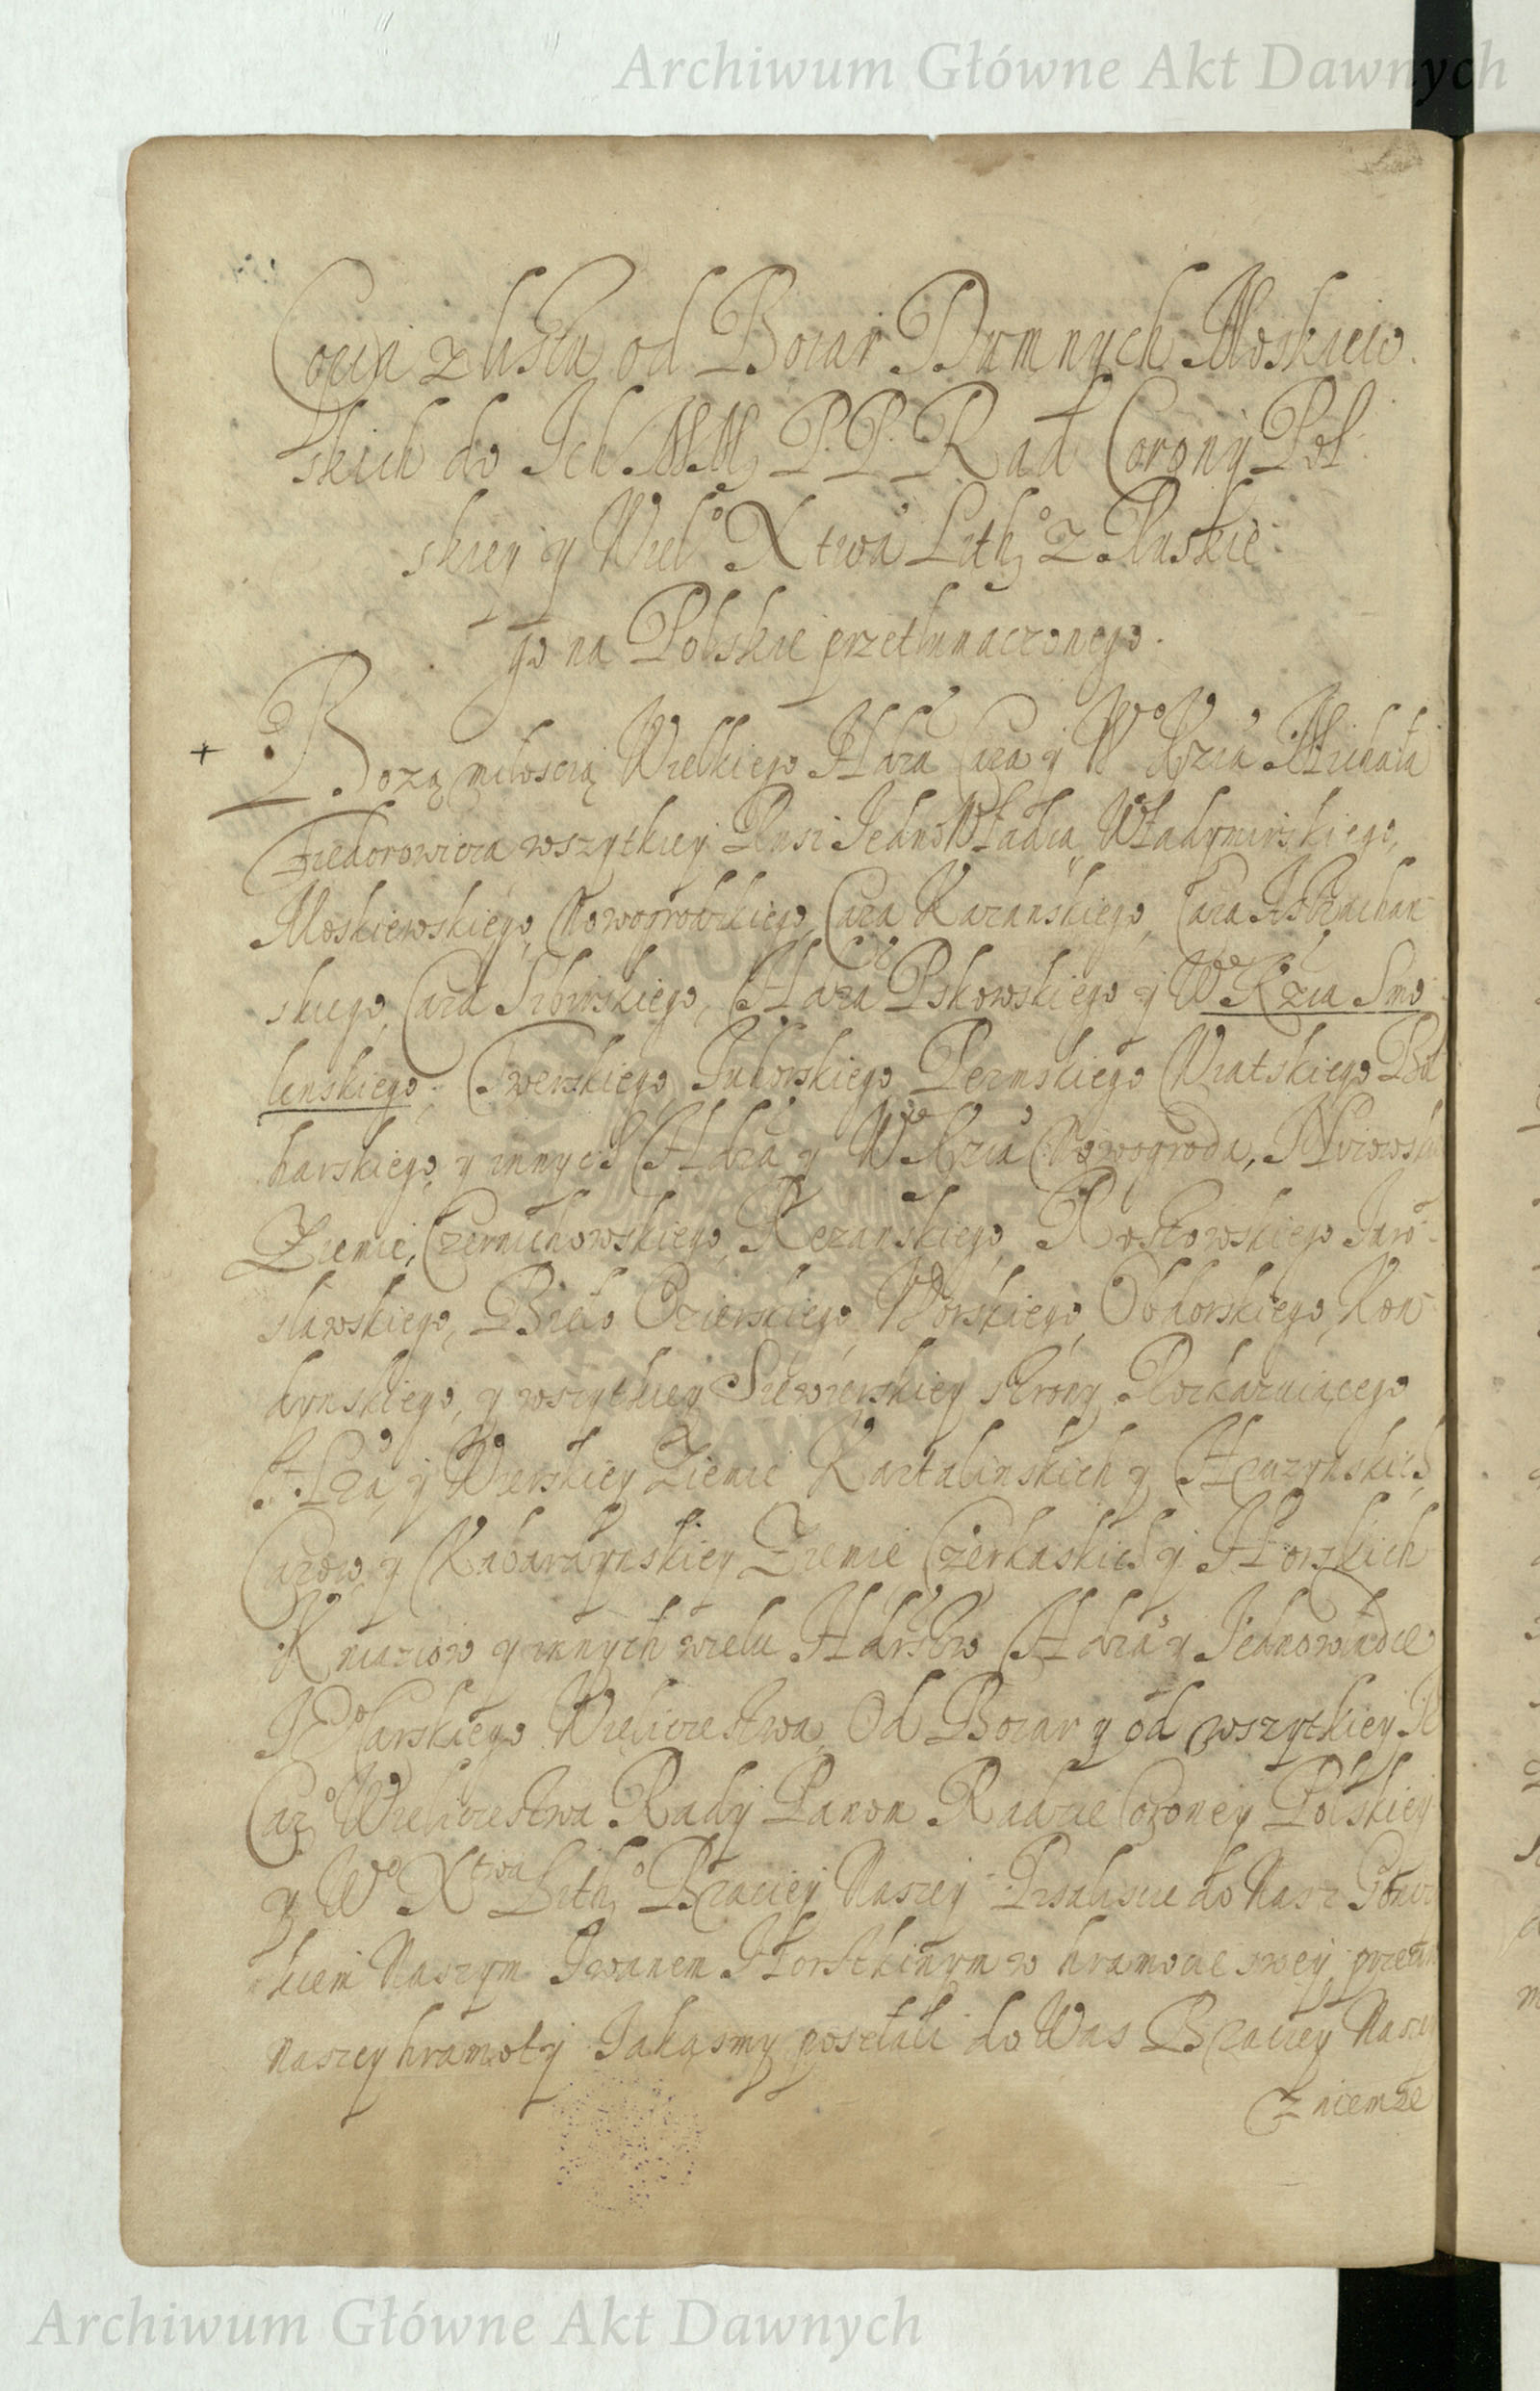 Archiwum Główne Akt Dawnych
Copia z listu od Boiar Dumnych Moskiew
skich do Ich MM. P. P. Rad Corony Pol
skiey y Wielo Xtwa Lith. z Ruskie
go na Polskie przetłumaczonego.
Bozą miłoscią Wielkiego Hdra Cara y Wo Kzia Michała
Fiedorowicza wszytkiey Rusi Jednowładca Władymirskiego,
Moskiewskiego, Nowogrodzkiego, Cara Kazanskiego, Cara Astrachan
skiego, Cara Sibirskiego, Hdra Pskowskiego y W Kzia Smo
lenskiego Twerskiego Juhorskiego Permskiego Wiatskiego Bol
harskiego y innych Hdra y W Kzia Nowogroda,
Ziemie, Czernichowskiego, Rezanskiego Rostowskiego Jaro
sławskiego, Bieło Ozierskiego, Obdorskiego, Kon
dynskiego, y wszytkiey Siewierskiey strony Rozkazuiącego
Hdra y Iwerskiey Ziemie Kartalinskich y Hruzynskich
Carow y Kabardynskiey Ziemie Czerkaskich y Horskich
Kniaziow y innych wielu Hdrstw Hdra y Jednowładce
Je Carskiego Wieliczestwa Od Boiar y od wszytkiey
Caro Wieliczestwa Rady Panom Radzie Corony Polskiey
y Wo Xtwa Litho Braciey Naszey Pisaliscie do Nas z Gon
kiem Naszym Iwanem w hramocie swey
Naszey hramoty Jakąsmy posłali do Was Braciey Naszey
z niemże
Archiwum Główne Akt Dawnych